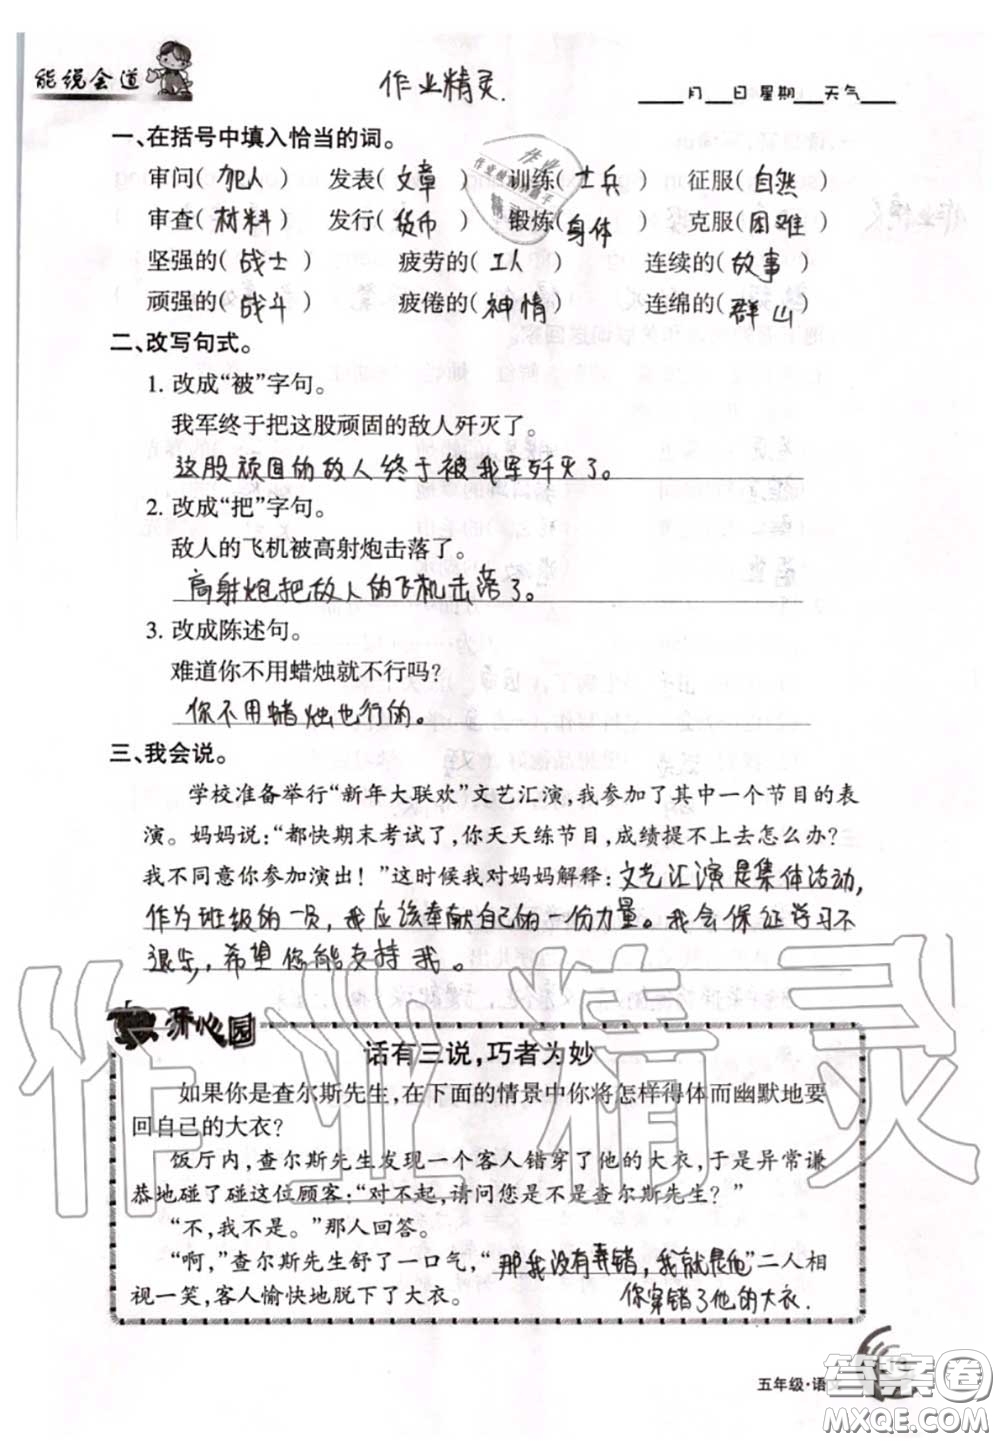 能说会道
作业精灵.
____月__日 星期___天气___
一、在括号中填入恰当的词。
审问(犯人) 发表(文章) 训练(士兵) 征服(自然)
审查(材料) 发行(货币) 锻炼(身体) 克服(困难)
坚强的(战士) 疲劳的(工人) 连续的(故事)
顽强的(战斗) 疲倦的(神情) 连绵的(群山)
二、改写句式。
1. 改成“被”字句。
我军终于把这股顽固的敌人歼灭了。
这股顽固的敌人终于被我军歼灭了。
2. 改成“把”字句。
敌人的飞机被高射炮击落了。
高射炮把敌人的飞机击落了。
3. 改成陈述句。
难道你不用蜡烛就不行吗?
你不用蜡烛也行的。
三、我会说。
学校准备举行“新年大联欢”文艺汇演,我参加了其中一个节目的表
演。妈妈说:“都快期末考试了,你天天练节目,成绩提不上去怎么办?
我不同意你参加演出!”这时候我对妈妈解释:文艺汇演是集体活动,
作为班级的一员,我应该奉献自己的一份力量。我会保证学习不
退步,希望你能支持我。
开心园
话有三说,巧者为妙
如果你是查尔斯先生,在下面的情景中你将怎样得体而幽默地要
回自己的大衣?
饭厅内,查尔斯先生发现一个客人错穿了他的大衣,于是异常谦
恭地碰了碰这位顾客:“对不起,请问您是不是查尔斯先生?”
“不,我不是。”那人回答。
“啊,”查尔斯先生舒了一口气,“那我没有弄错,我就是他”二人相
视一笑,客人愉快地脱下了大衣。
你穿错了他的大衣.
五年级·语文
作业精灵
答案圈
MXQE.COM